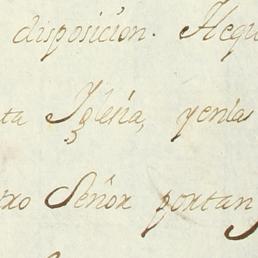 disposicion. Hequ
ta Iglesia, yenla
tro Señor portan